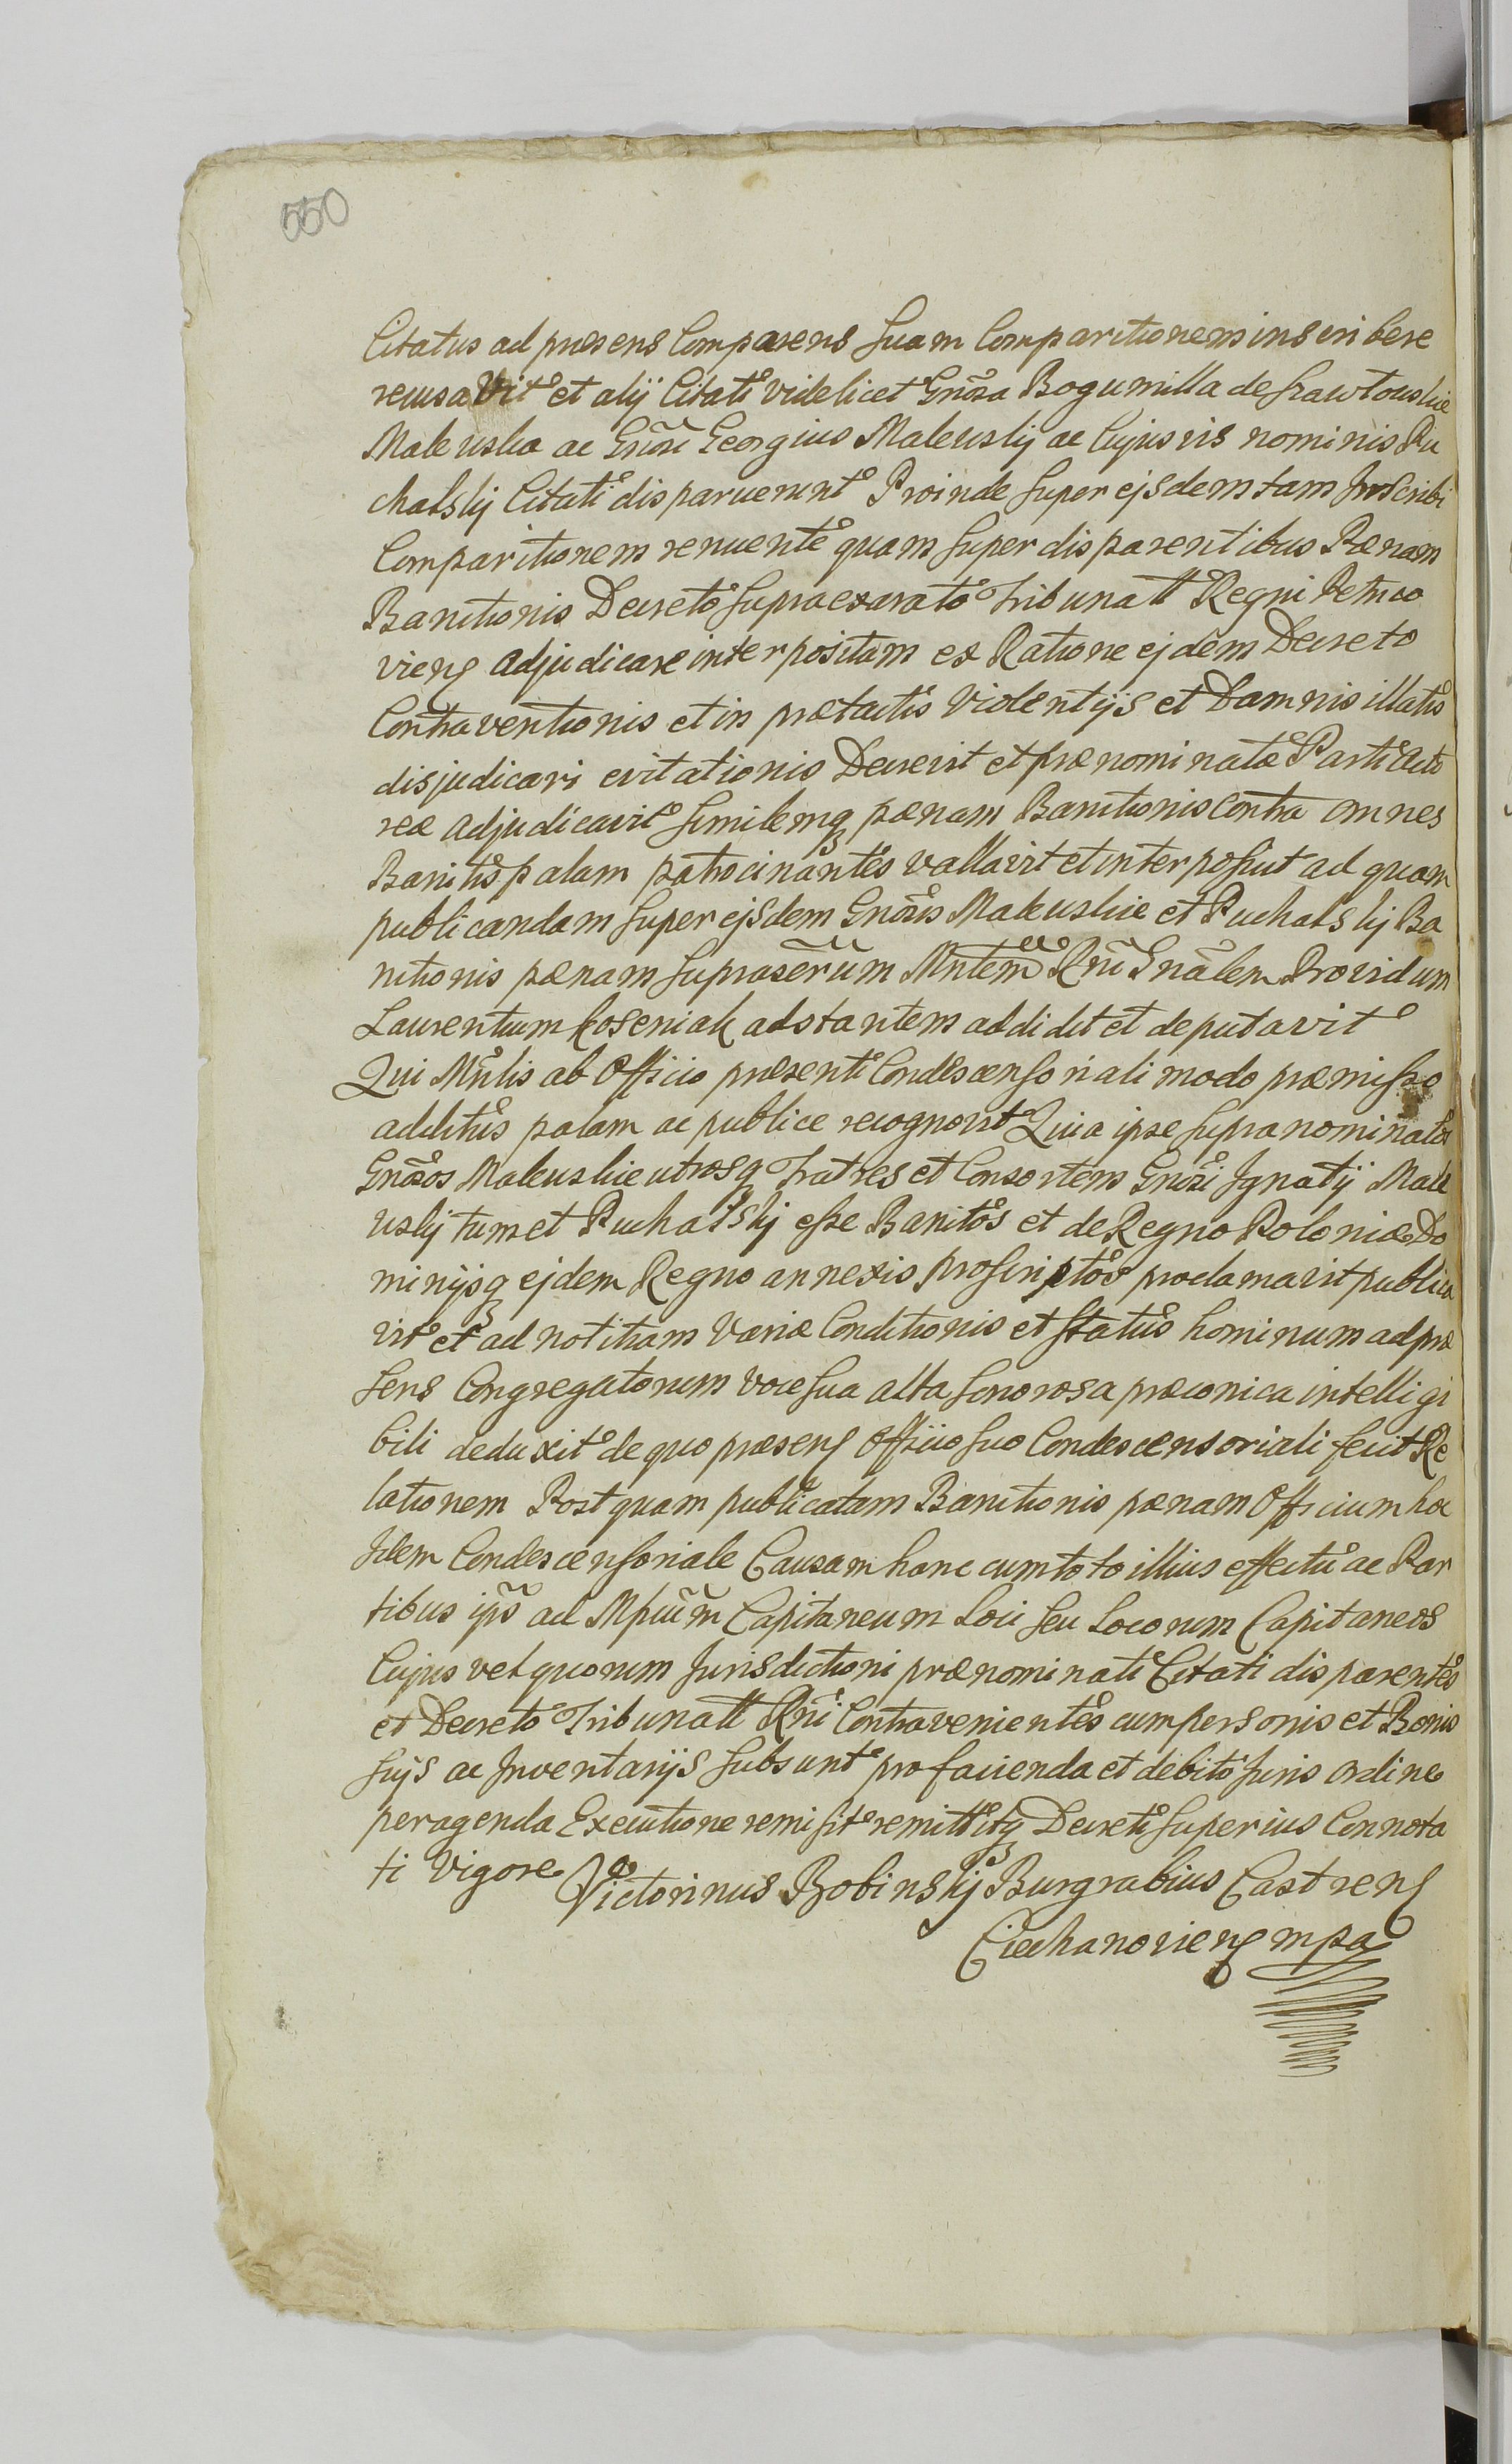 550
Citatus ad præsens Comparens Suam Comparitionem inscribere
recusavit et alij Citati videlicet Gnosa Bogumilla de
Maleuska ac Gnosi Georgius Maleuskj ac Cujusvis nominis Pu
chalskj Citati disparuerunt Proinde Super ejsdem tam Inscribi
Comparitionem renuente quam Super disparentibus Pænam
Banitionis Decreto Supraexarato Tribunall Regni Petrico
viens adjudicare interpositam ex Ratione ejdem Decreto
Contraventionis et in prætactis Violentijs et Damnis illatis
disjudicari evitationis Decrevit et prænominatæ Parti Acto
reæ adjudicavit Similemq pænam Banitionis contra omnes
Banitis palam patrocinantes vallavit et interposuit ad quam
publicandam Super ejsdem Gnosis Maleuskie et Puchalskj Ba
nitionis pænam Suprascrum Mntem Rni Gnalem Providum
Laurentium Koseniak adstantem addidit et deputavit
Qui Mnlis ab Officio præsenti Condescensoriali modo præmisso
additus palam ac publice recognovit Quia ipse Supranominatos
Gnosos Maleuskie utrosq Fratres et Consortem Gnosi Ignatij Male
uskj tum et Puchalskj esse Banitos et de Regno Poloniæ Do
minijsq ejdem Regno annexis proscriptos proclamavit publica
vit et ad notitiam Variæ Conditionis et Status hominum ad præ
sens Congregatorum voce sua alta sonorosa præconica intelligi
bili deduxit de quo præsens Officio suo Condescensoriali fecit Re
lationem Post quam publicatam Banitionis pænam Officium hoc
Idem Condescensoriale Causam hanc cum toto illius effectu ac Par
tibus ips ad Mpcum Capitaneum Loci seu Locorum Capitaneos
Cujus vel quorum Jurisdictioni prænominati Citati disparentes
et Decreto Tribunall Rni Contravenientes cum personis et Bonis
Sujs ac Inventarijs Subsunt pro facienda et debito Juris ordine
peragenda Executione remisit remittitq Decreti Superius Connota
ti Vigore Victorinus Bobinskj Burgrabius Castrens
Ciechanoviens mpa